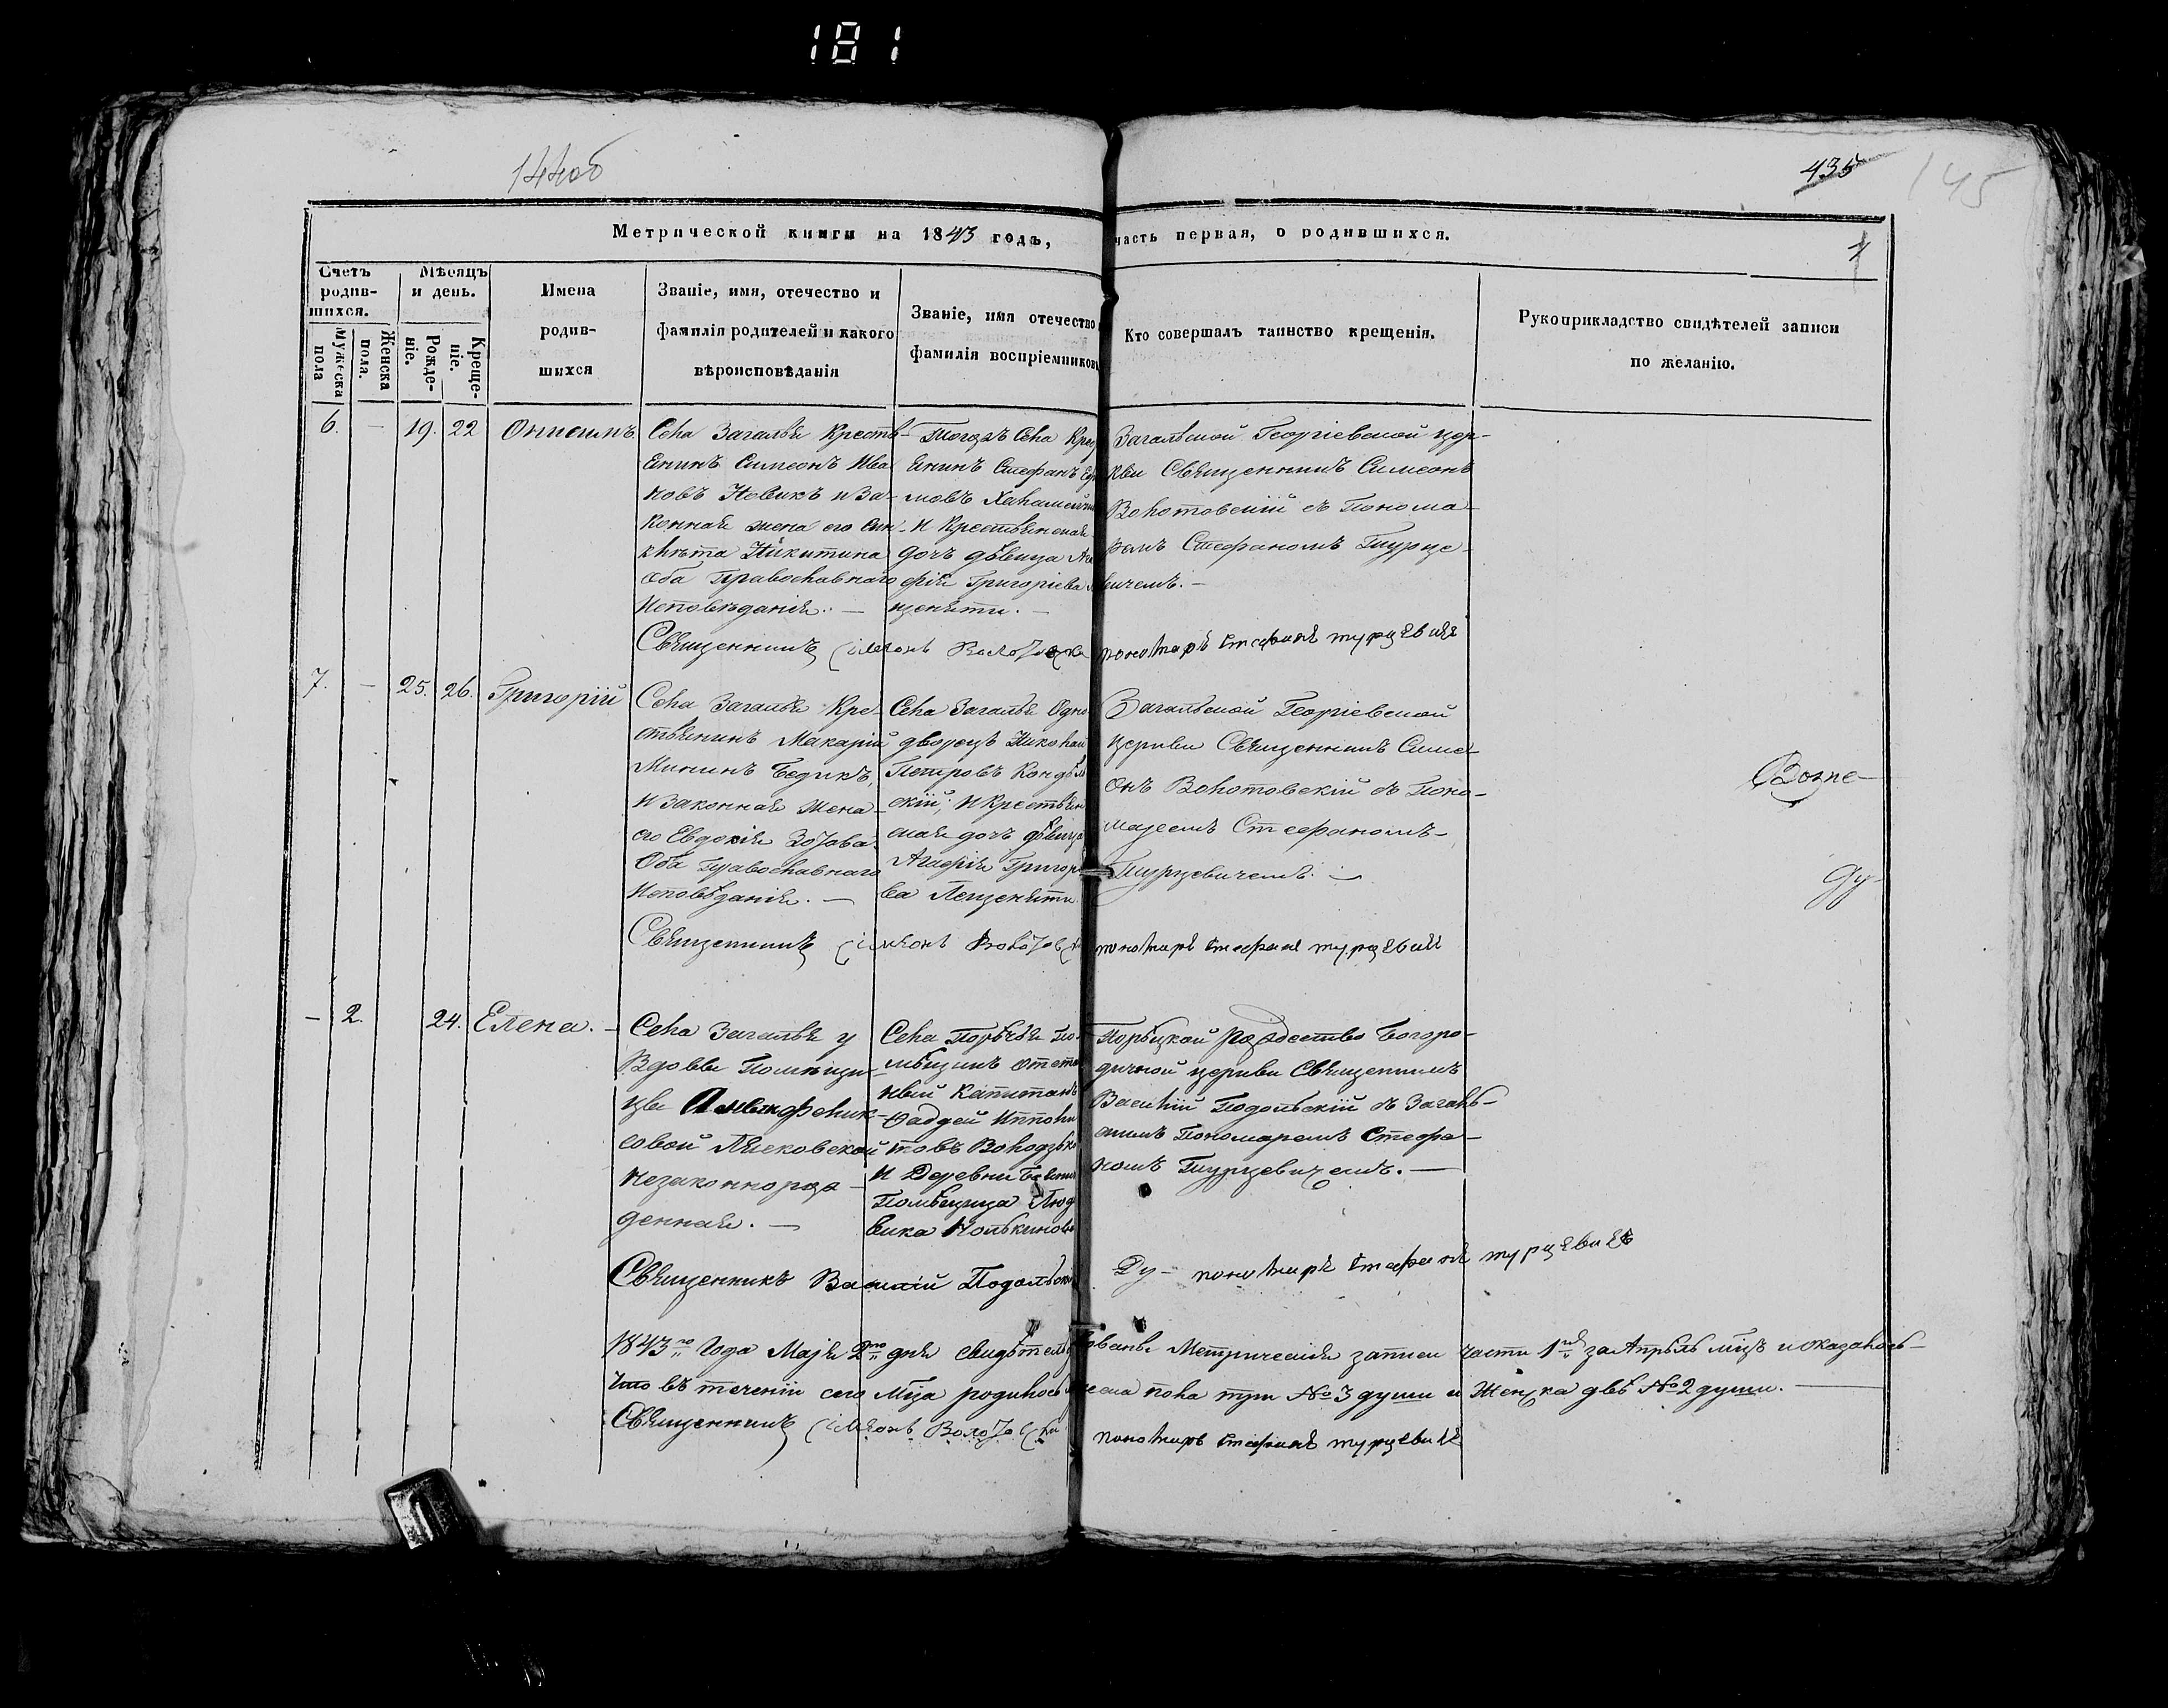 181
144об
435
145
Метрической книги на 1843 годъ, часть первая, о родившихся.
Счетъ родив-шихся.
Мужеска пола
Женска пола.
Мѣсяцъ и день.
Рожде-ніе.
Креще-ніе.
Имена родив-шихся
Званіе, имя, отечество и фамилія родителей и какого вѣроисповѣданія
Званіе, имя отечество фамилія воспріемниковъ
Кто совершалъ таинство крещенія.
Рукоприкладство свидѣтелей записи по желанію.
6. — 19. 22 Онисимъ
Села Загалья Кресть-
янинъ Симеонъ Ива
новъ Новикъ и За-
конная жена его
Никитина
Оба Православнаго
Исповѣданія. —
Тогожъ Села Крес
янинъ Стефанъ
мовъ
и Крестьянская
дочь дѣвица
фія Григорієва
щеняти. —
Загальской Георгіевской цер-
кви Священникъ Симеонъ
Волотовскій съ Понома
ремъ Стефаномъ Турце-
вичемъ. —
Священникъ Сімеонъ Волотовскі
пономаръ Стефанъ турцевичъ
7. — 25. 26. Григорій
Села Загалья Кре-
стьянинъ Макарій
Мининъ Бедикъ,
и Законная жена
его Евдокія Зотова.
Оба Православнаго
Исповѣданія. —
Села Загалья Одно
дворецъ Николай
Петровъ
скій; и Крестьян
ская дочь дѣвица
Агафія Григорі
ва Лещеняти.
Загальской Георгіевской
церкви Священникъ Симе-
онъ Волотовскій съ Поно-
маремъ Стефаномъ
Турцевичемъ. —
Возне-
Ду-
Священникъ Сімеонъ Волотовскі
пономаръ Стефанъ турцевичъ
— 2. 24. Елена. —
Села Загалья у
Вдовы Помѣщи-
цы
совой Лисковской
незаконнорож-
денная. —
Села Порѣчья По-
мѣщикъ Отста
ный Капитанъ
Фадей Ипполи
товъ Володзько
и Деревни
Помѣщица Люд
вика
Порѣцкой Рождество Богоро-
дичной церкви Священникъ
Василій Подольскій съ Загаль-
скимъ Пономаремъ Стефа-
номъ Турцевичемъ. —
Священникъ Василій Подольскі
Ду- пономаръ Стефанъ турцевичъ
1843го Года Маія 2го дня свидѣтельствованы Метрическія записи части 1й за Апрѣль мцъ и оказалось
что въ теченіи сего Мца родилось мужеска пола три № 3 души и Женска двѣ № 2 души. —
Священникъ Сімеонъ Волотовскі
пономаръ Стефанъ турцевичъ